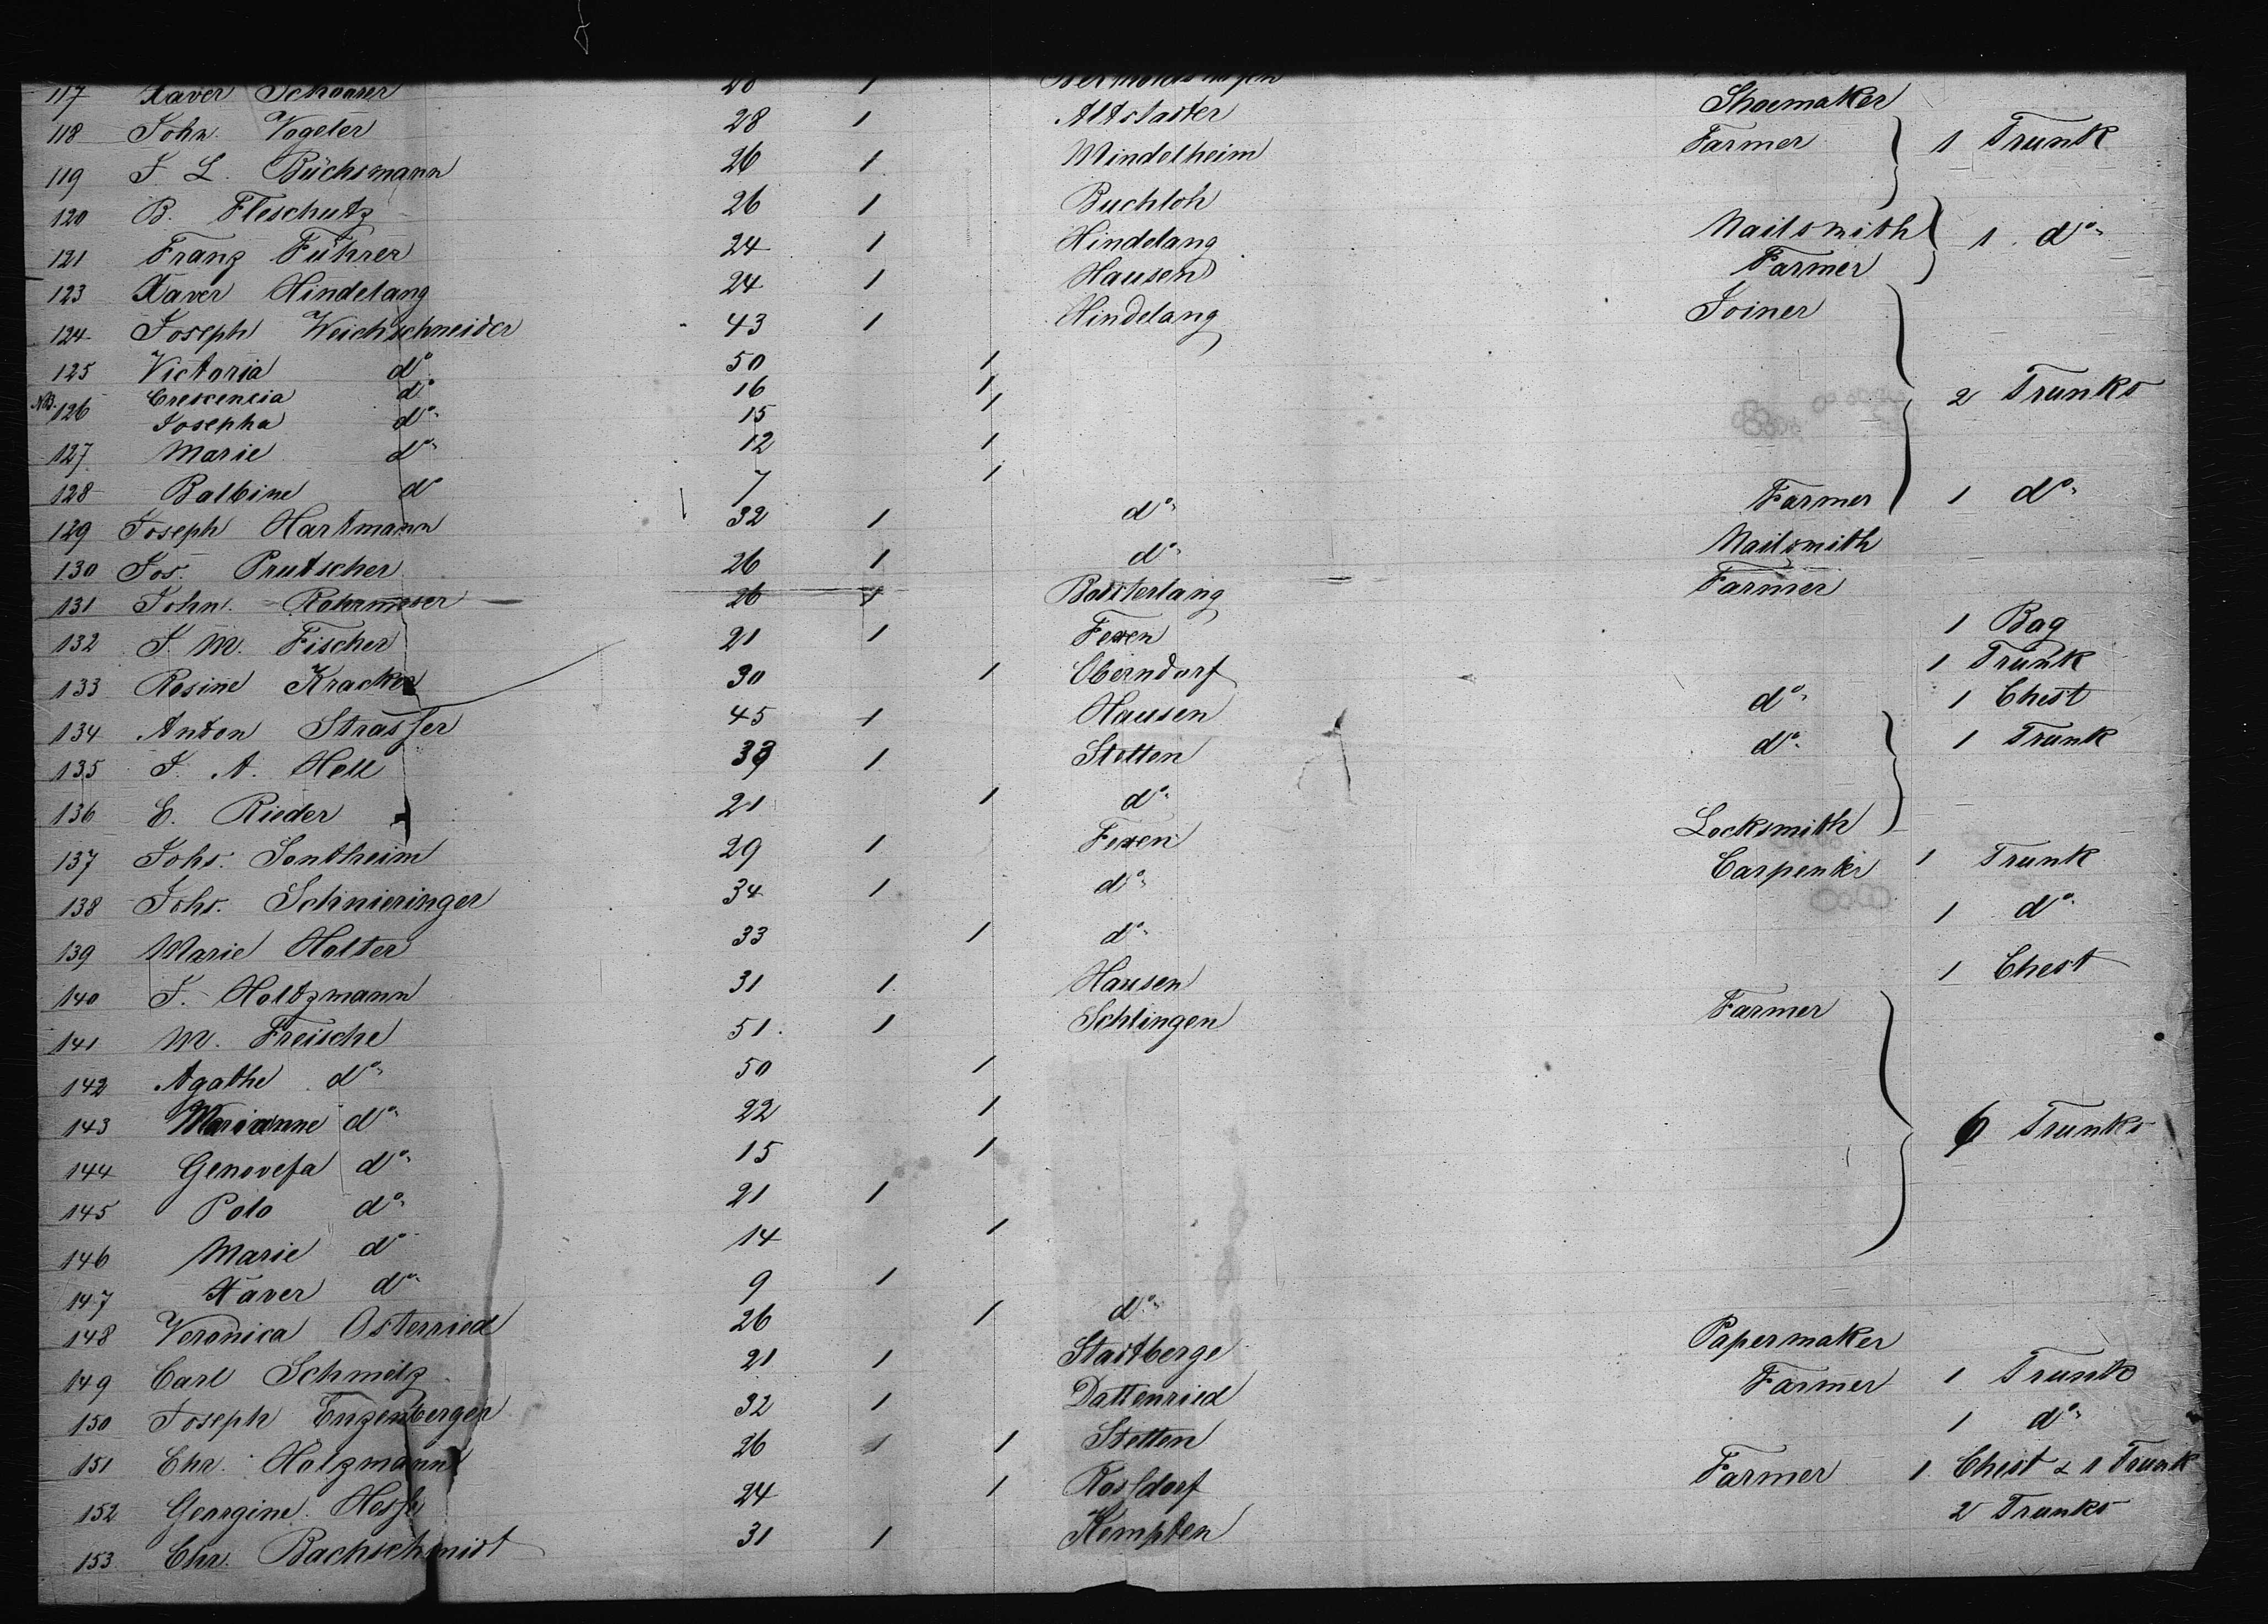 117 Xaver Schaarer 28 1
118 John. Vogeler 28 1 Altstadter Shoemaker
119 F. L. Büchsmann 26 1 Mindelheim Farmer 1 Trunk
120 B. Fleschutz 26 1 Buchloh
121 Franz Führer 24 1 Hindelang Nailsmith 1 do
123 Xaver Hindelang 24 1 Hausen Farmer
124 Joseph Weichschneider 43 1 Hindelang Joiner
125 Victoria do 50 1
NB. 126 Crescencia do 16 1 2 Trunks
Josepha do 15 1
127 Marie do 12 1
128 Balbine do 7 1
129 Joseph Hartmann 32 1 do Farmer 1 do
130 Jos. Prutscher 26 1 do Nailsmith
131 John. Rohrmoser 26 1 Bolsterlang Farmer
132 J. M. Fischer 21 1 Fexen 1 Bag
133 Rosine Kracker 30 1 Oberndorf 1 Trunk
134 Anton Strasser 45 1 Hausen do 1 Chest
135 J. A. Hell 33 1 Stetten do 1 Trunk
136 C. Rieder 21 1 do
137 Johs. Sontheim 29 1 Fexen Locksmith 1 Trunk
138 Johs. Schnieringer 34 1 do Carpenter 1 do
139 Marie Holter 33 1 do 1 Chest
140 J. Holtzmann 31 1 Hausen
141 M. Freische 51 1 Schlingen Farmer
142 Agathe do 50 1
143 Marianne do 22 1 6 Trunks
144 Genovefa do 15 1
145 Polo do 21 1
146 Marie do 14 1
147 Xaver do 9 1
148 Veronica Osterried 26 1 do
149 Carl Schmelz 21 1 Stadtberge Papermaker 1 Trunk
150 Joseph Enzenberger 32 1 Dattenried Farmer 1 do
151 Chr. Holzmann 26 1 1 Stetten 1 Chest & 1 Trunk
152 Georgine Hesse 24 1 Rossdorf Farmer 2 Trunks
153 Chr. Bachschmidt 31 1 Kempten